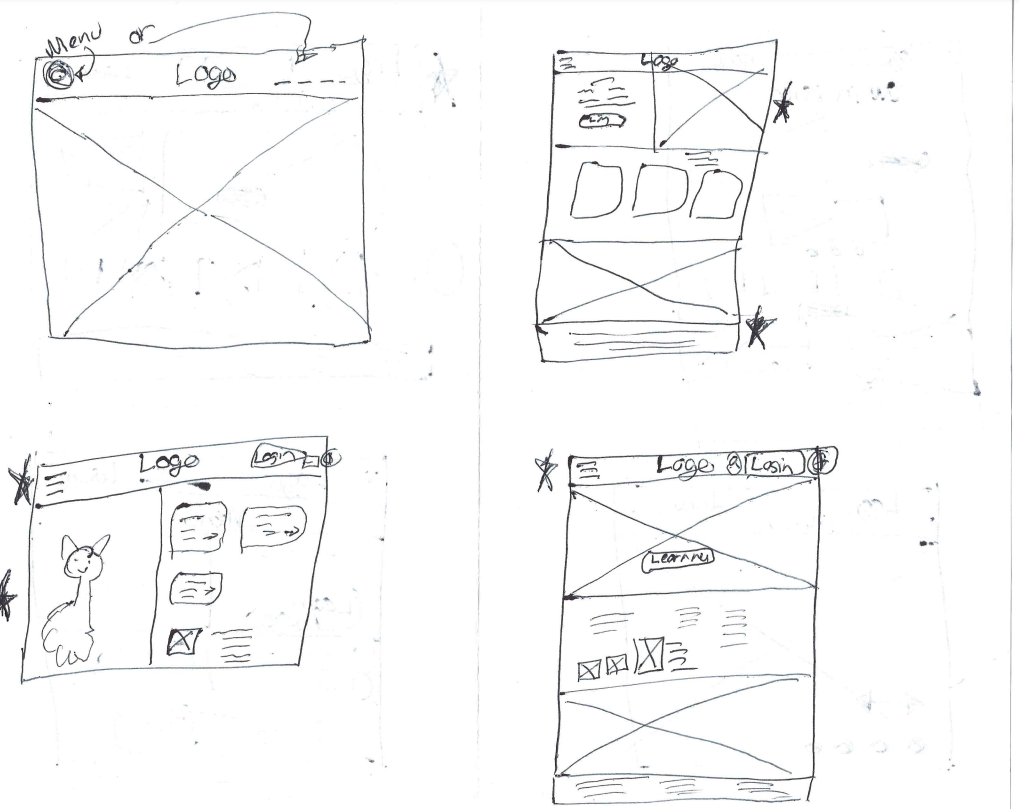 Menu or
Logo
Logo
Logo Login
Logo Login
Learn